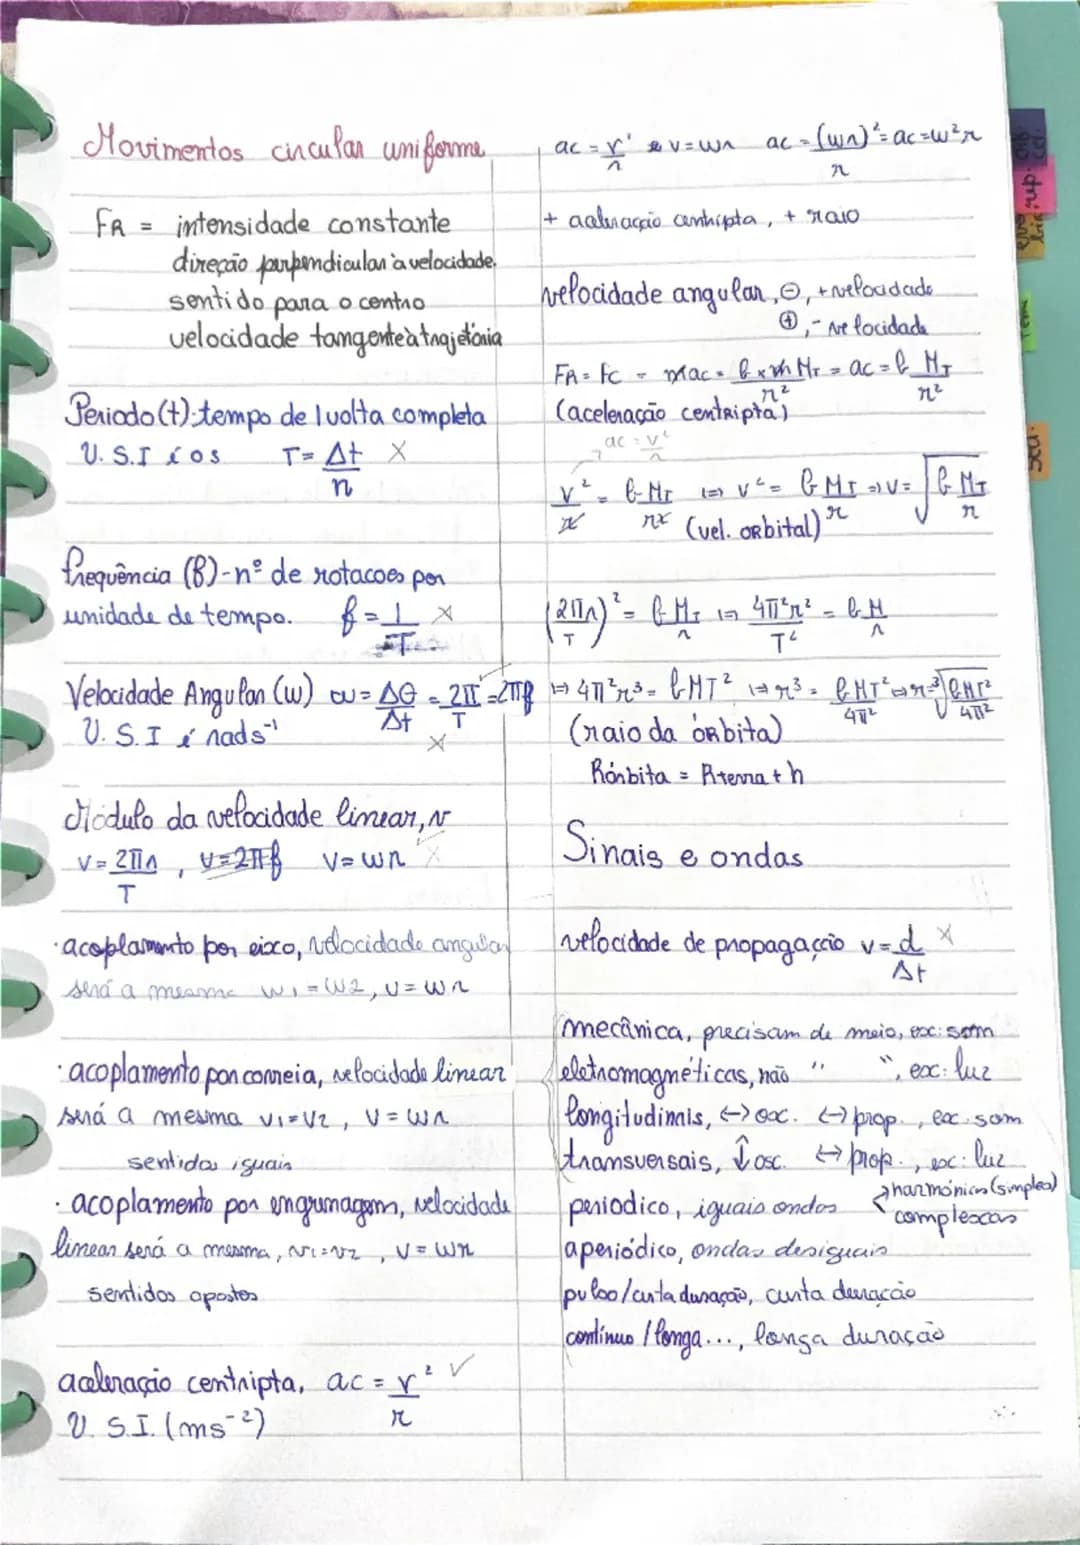 Movimentos circular uniforme
FR = intensidade constante
direção perpendicular à velocidade.
sentido para o centro
velocidade tangente à trajetória
Periodo (t) - tempo de 1 volta completa
U. S.I é o s T = Δt/n X
frequência (f) - nº de rotacoes por
unidade de tempo. f = 1/T X
Velocidade Angular (w) ω = Δθ/Δt = 2π/T = 2πf
U. S. I é rads⁻¹ X
Módulo da velocidade linear, v
v = 2πr/T , v = 2πf v = wr X
· acoplamento por eixo, velocidade angular
será a mesma w1 = w2, v = wr
· acoplamento por correia, velocidade linear
será a mesma v1 = v2 , v = wr
sentidos iguais
· acoplamento por engrenagem, velocidade
linear será a mesma, v1 = v2 , v = wr
sentidos opostos
aceleração centripta, ac = v²/r ✓
U. S.I. (ms⁻²)
ac = v²/r e v = wr ac = (wr)²/r = ac = w²r
+ aceleração centripta, + raio
velocidade angular, ⊖, + velocidade
⊕, - velocidade
FR = Fc = mac = G x m MT/r² = ac = G MT/r²
(aceleração centripta)
ac = v²/r
v²/r = G MT/r² ⇔ v² = G MT/r ⇒ v = √(G MT/r)
(vel. orbital)
(2πr/T)² = G MT/r ⇔ 4π²r²/T² = G M/r
⇔ 4π²r³ = GMT² ⇔ r³ = GMT²/4π² ⇔ r = ³√(GMT²/4π²)
(raio da órbita)
Rórbita = Rterra + h
Sinais e ondas
velocidade de propagaçção v = d/Δt X
mecânica, precisam de meio, ex: som
eletromagnéticas, não " ", ex: luz
longitudinais, ↔ osc. ↔ prop., ex: som
transversais, ↕ osc. ↔ prop., ex: luz
periodico, iguais ondas → harmónicas (simples)
complexas
aperiódico, ondas desiguais
pulso/curta duração, curta duração
contínuo / longa..., longa duração